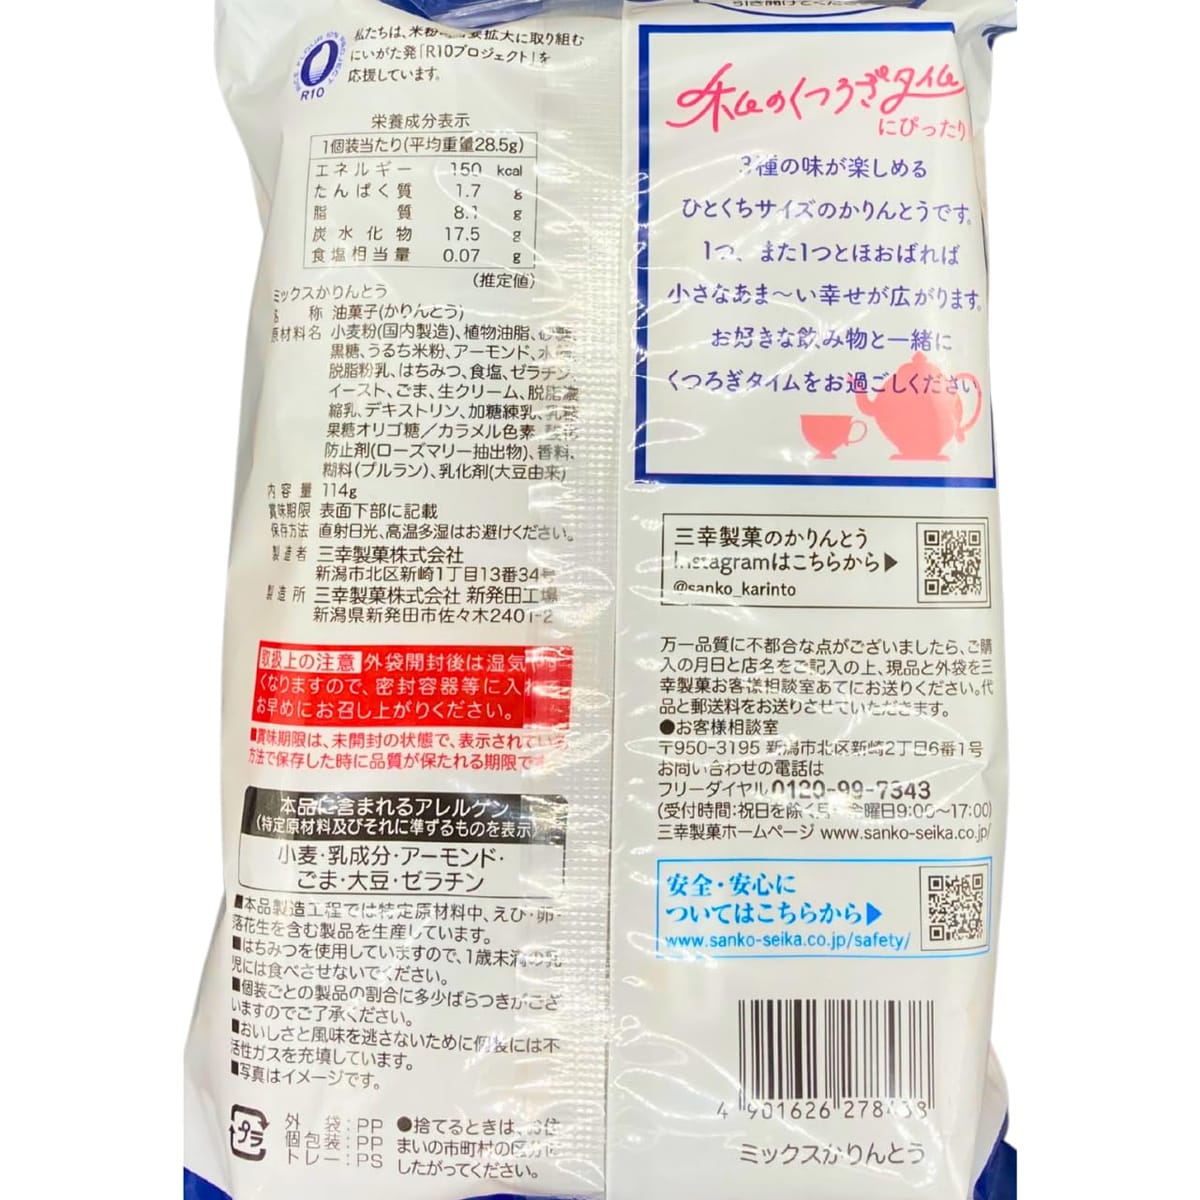 引き開けてくださ
R10
私たちは、米粉の需要拡大に取り組む
にいがた発「R10プロジェクト」を
応援しています。
栄養成分表示
1個装当たり(平均重量28.5g)
エネルギー 150 kcal
たんぱく質 1.7 g
脂質 8.1 g
炭水化物 17.5 g
食塩相当量 0.07 g
(推定値)
ミックスかりんとう
名称 油菓子(かりんとう)
原材料名 小麦粉(国内製造)、植物油脂、砂糖、
黒糖、うるち米粉、アーモンド、水飴、
脱脂粉乳、はちみつ、食塩、ゼラチン、
イースト、ごま、生クリーム、脱脂濃
縮乳、デキストリン、加糖練乳、乳糖
果糖オリゴ糖/カラメル色素、酸化
防止剤(ローズマリー抽出物)、香料、
糊料(プルラン)、乳化剤(大豆由来)
内容量 114g
賞味期限 表面下部に記載
保存方法 直射日光、高温多湿はお避けください。
製造者 三幸製菓株式会社
新潟市北区新崎1丁目13番34号
製造所 三幸製菓株式会社 新発田工場
新潟県新発田市佐々木2401-2
取扱上の注意 外袋開封後は湿気やす
くなりますので、密封容器等に入れ
お早めにお召し上がりください。
■賞味期限は、未開封の状態で、表示されている
方法で保存した時に品質が保たれる期限です
本品に含まれるアレルゲン
(特定原材料及びそれに準ずるものを表示)
小麦・乳成分・アーモンド・
ごま・大豆・ゼラチン
■本品製造工程では特定原材料中、えび・卵・
落花生を含む製品を生産しています。
■はちみつを使用していますので、1歳未満の乳
児には食べさせないでください。
■個装ごとの製品の割合に多少ばらつきがござ
いますのでご了承ください。
■おいしさと風味を逃さないために個装には不
活性ガスを充填しています。
■写真はイメージです。
プラ
外袋:PP
個包装:PP
トレー:PS
●捨てるときは、お住
まいの市町村の区分に
したがってください。
私のくつろぎタイム
にぴったり
3種の味が楽しめる
ひとくちサイズのかりんとうです。
1つ、また1つとほおばれば
小さなあま〜い幸せが広がります。
お好きな飲み物と一緒に
くつろぎタイムをお過ごしください
三幸製菓のかりんとう
Instagramはこちらから▶
@sanko_karinto
万一品質に不都合な点がございましたら、ご購
入の月日と店名をご記入の上、現品と外袋を三
幸製菓お客様相談室あてにお送りください。代
品と郵送料をお送りさせていただきます。
●お客様相談室
〒950-3195 新潟市北区新崎2丁目6番1号
お問い合わせの電話は
フリーダイヤル0120-99-7343
(受付時間:祝日を除く月~金曜日9:00~17:00)
三幸製菓ホームページ www.sanko-seika.co.jp/
安全・安心に
ついてはこちらから▶
www.sanko-seika.co.jp/safety/
4 901626 278438
ミックスかりんとう